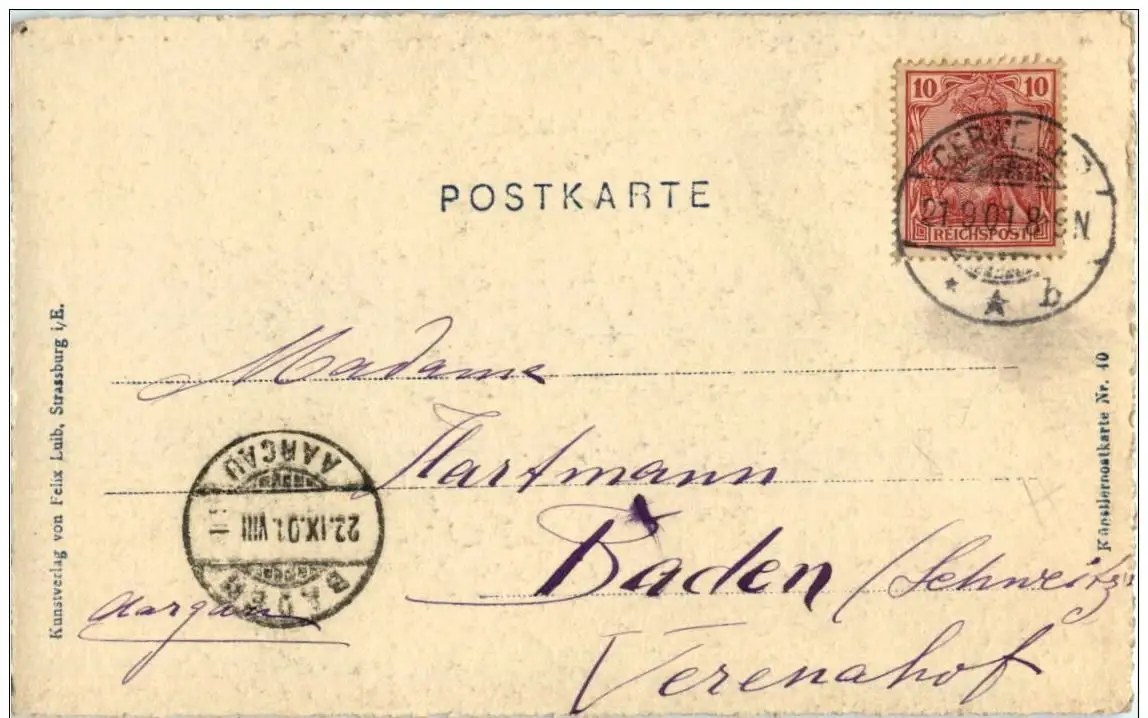 10 10
REICHSPOST
21.9.01.8-9N
* ★ b
POSTKARTE
Madame
Hartmann
Baden (Schweiz)
Aargau
Verenahof
BADEN
22.IX.01.VIII
AARGAU
Kunstverlag von Felix Luib, Strassburg i/E.
Künstlerpostkarte Nr. 40